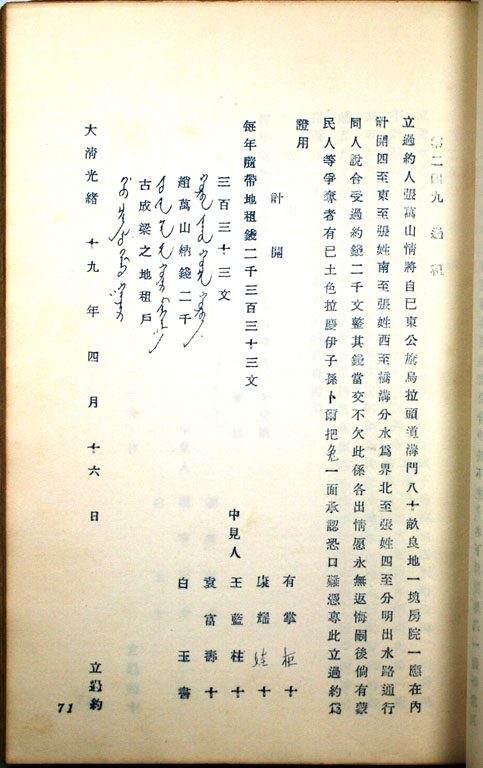 第二四九 過租
立過約人張萬山情將自已東公旗烏拉頭道溝門八十畝良地一塊房院一應在內
計開四至東至張姓南至張姓西至橋溝分水爲界北至張姓四至分明出水路通行
同人說合受過約錢二千文整其錢當交不欠此係各出情愿永無返悔嗣後倘有蒙
民人等爭奪者有已土色拉慶伊子孫卜爾把兔一面承認恐口難憑專此立過約爲
證用
計開
每年隨帶地租錢二千三百三十三文
三百三十三文
趙萬山納錢二千
古成梁之地租戶
有掌柜十
康耀娃十
中見人王藍柱十
袁富壽十
白玉書
大清光緒十九年四月十六日 立過約
71